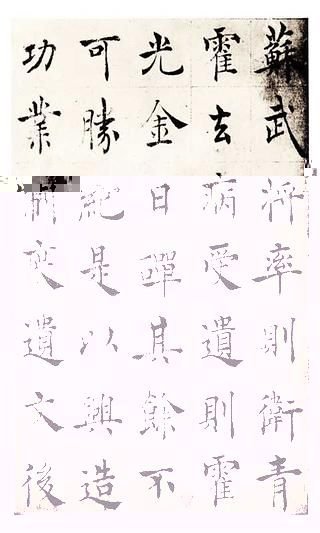 蘇武將率則衛青
霍去病受遺則霍
光金日磾其餘不
可勝紀是以興造
功業制度遺文後